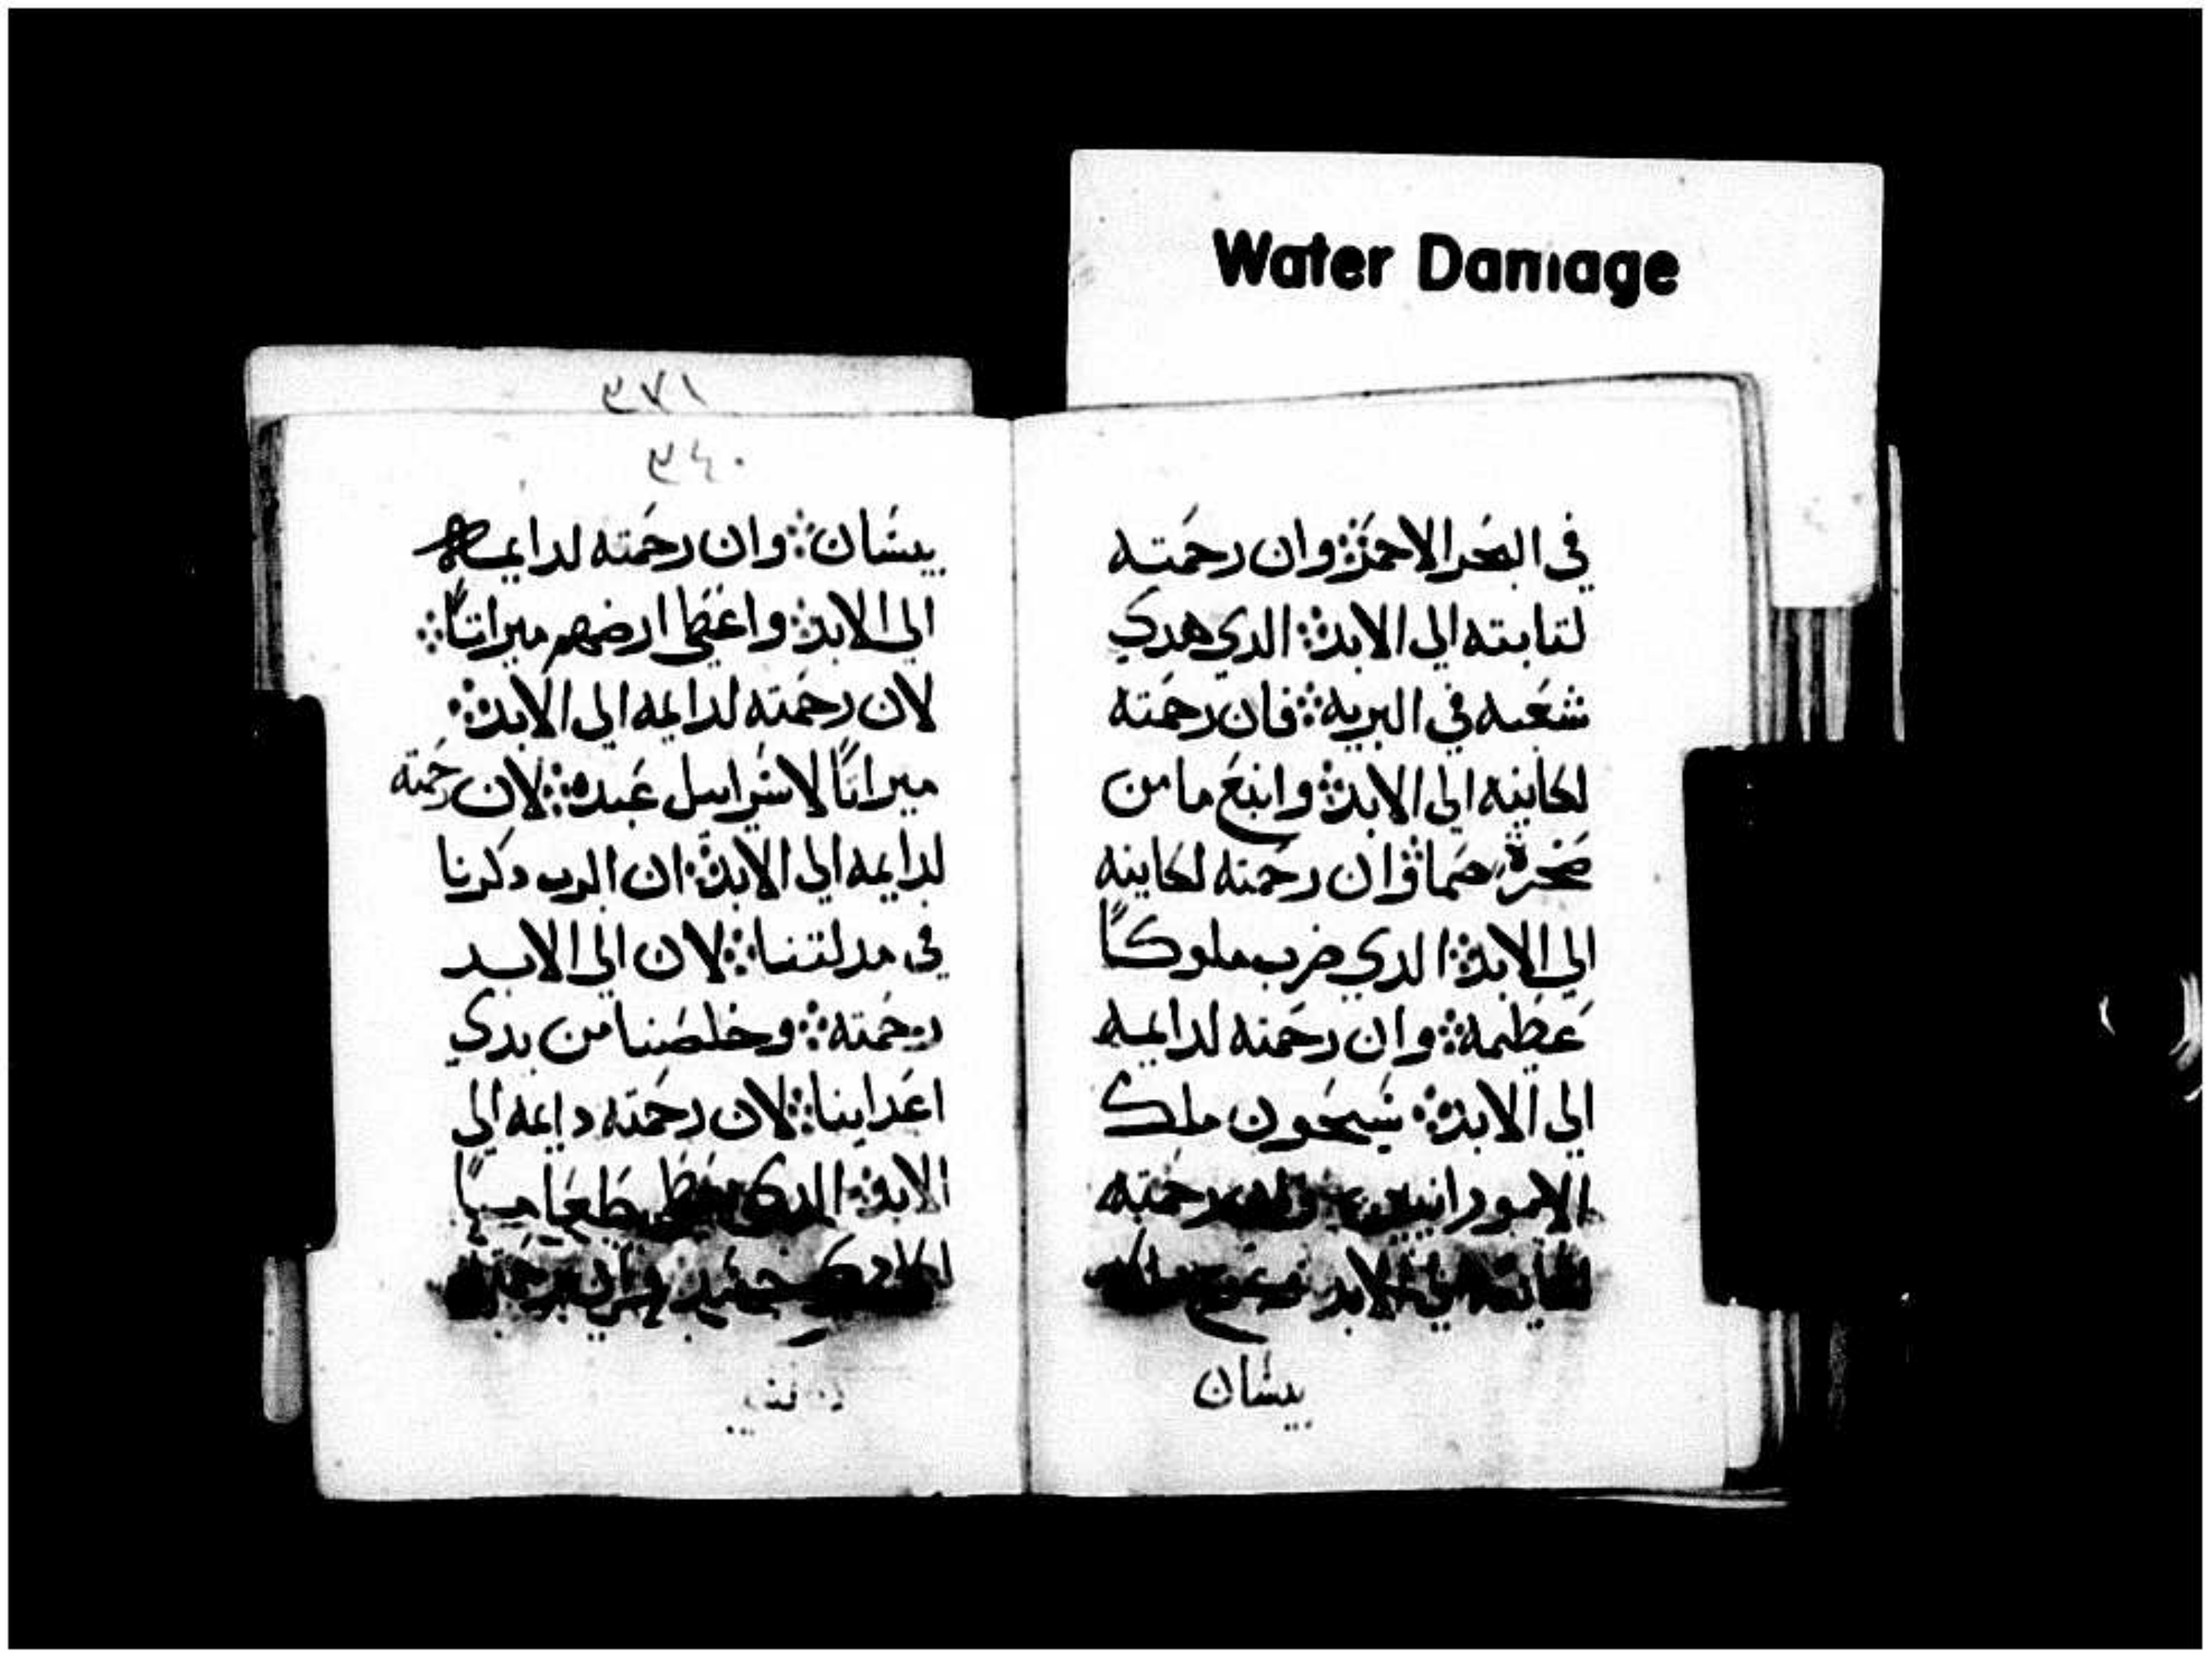 Water Damage
في البحر الاحمر܀ وان رحمته
لتابته الي الابد܀ الدي هدي
شعبه في البريه܀ فان رحمته
لكاينه الي الابد܀ وانبع ما من
صخرة صما܀ وان رحمته لكاينه
الي الابد܀ الدي ضرب ملوكًا
عظيمه܀ وان رحمته لدايمه
الي الابد܀ سيحون ملك
الامورانيين܀ رحمته
لكاينه الي الابد وعوج ملك
بيسان
٣٧١
٣٤٠
بيسان܀ وان رحمته لدايمه
الي الابد܀ واعطا ارضهم ميراتًا܀
لان رحمته لدايمه الي الابد܀
ميراتًا لاسراييل عبده܀ لان رحمته
لدايمه الي الابد܀ ان الرب دكرنا
في مدلتنا܀ لان الي الابد
رحمته܀ وخلصنا من يدي
اعداينا܀ لان رحمته دايمه الي
الابد܀ الدي طعامًا
لكل جسد܀ وان رحمته